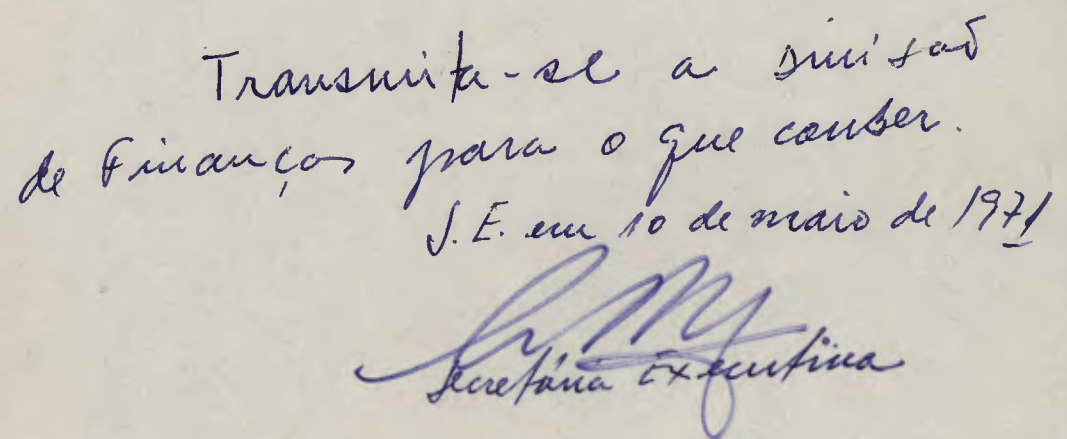 Transmita-se a Divisão
de Finanças para o que couber.
S.E. em 10 de maio de 1971
Secretária Executiva